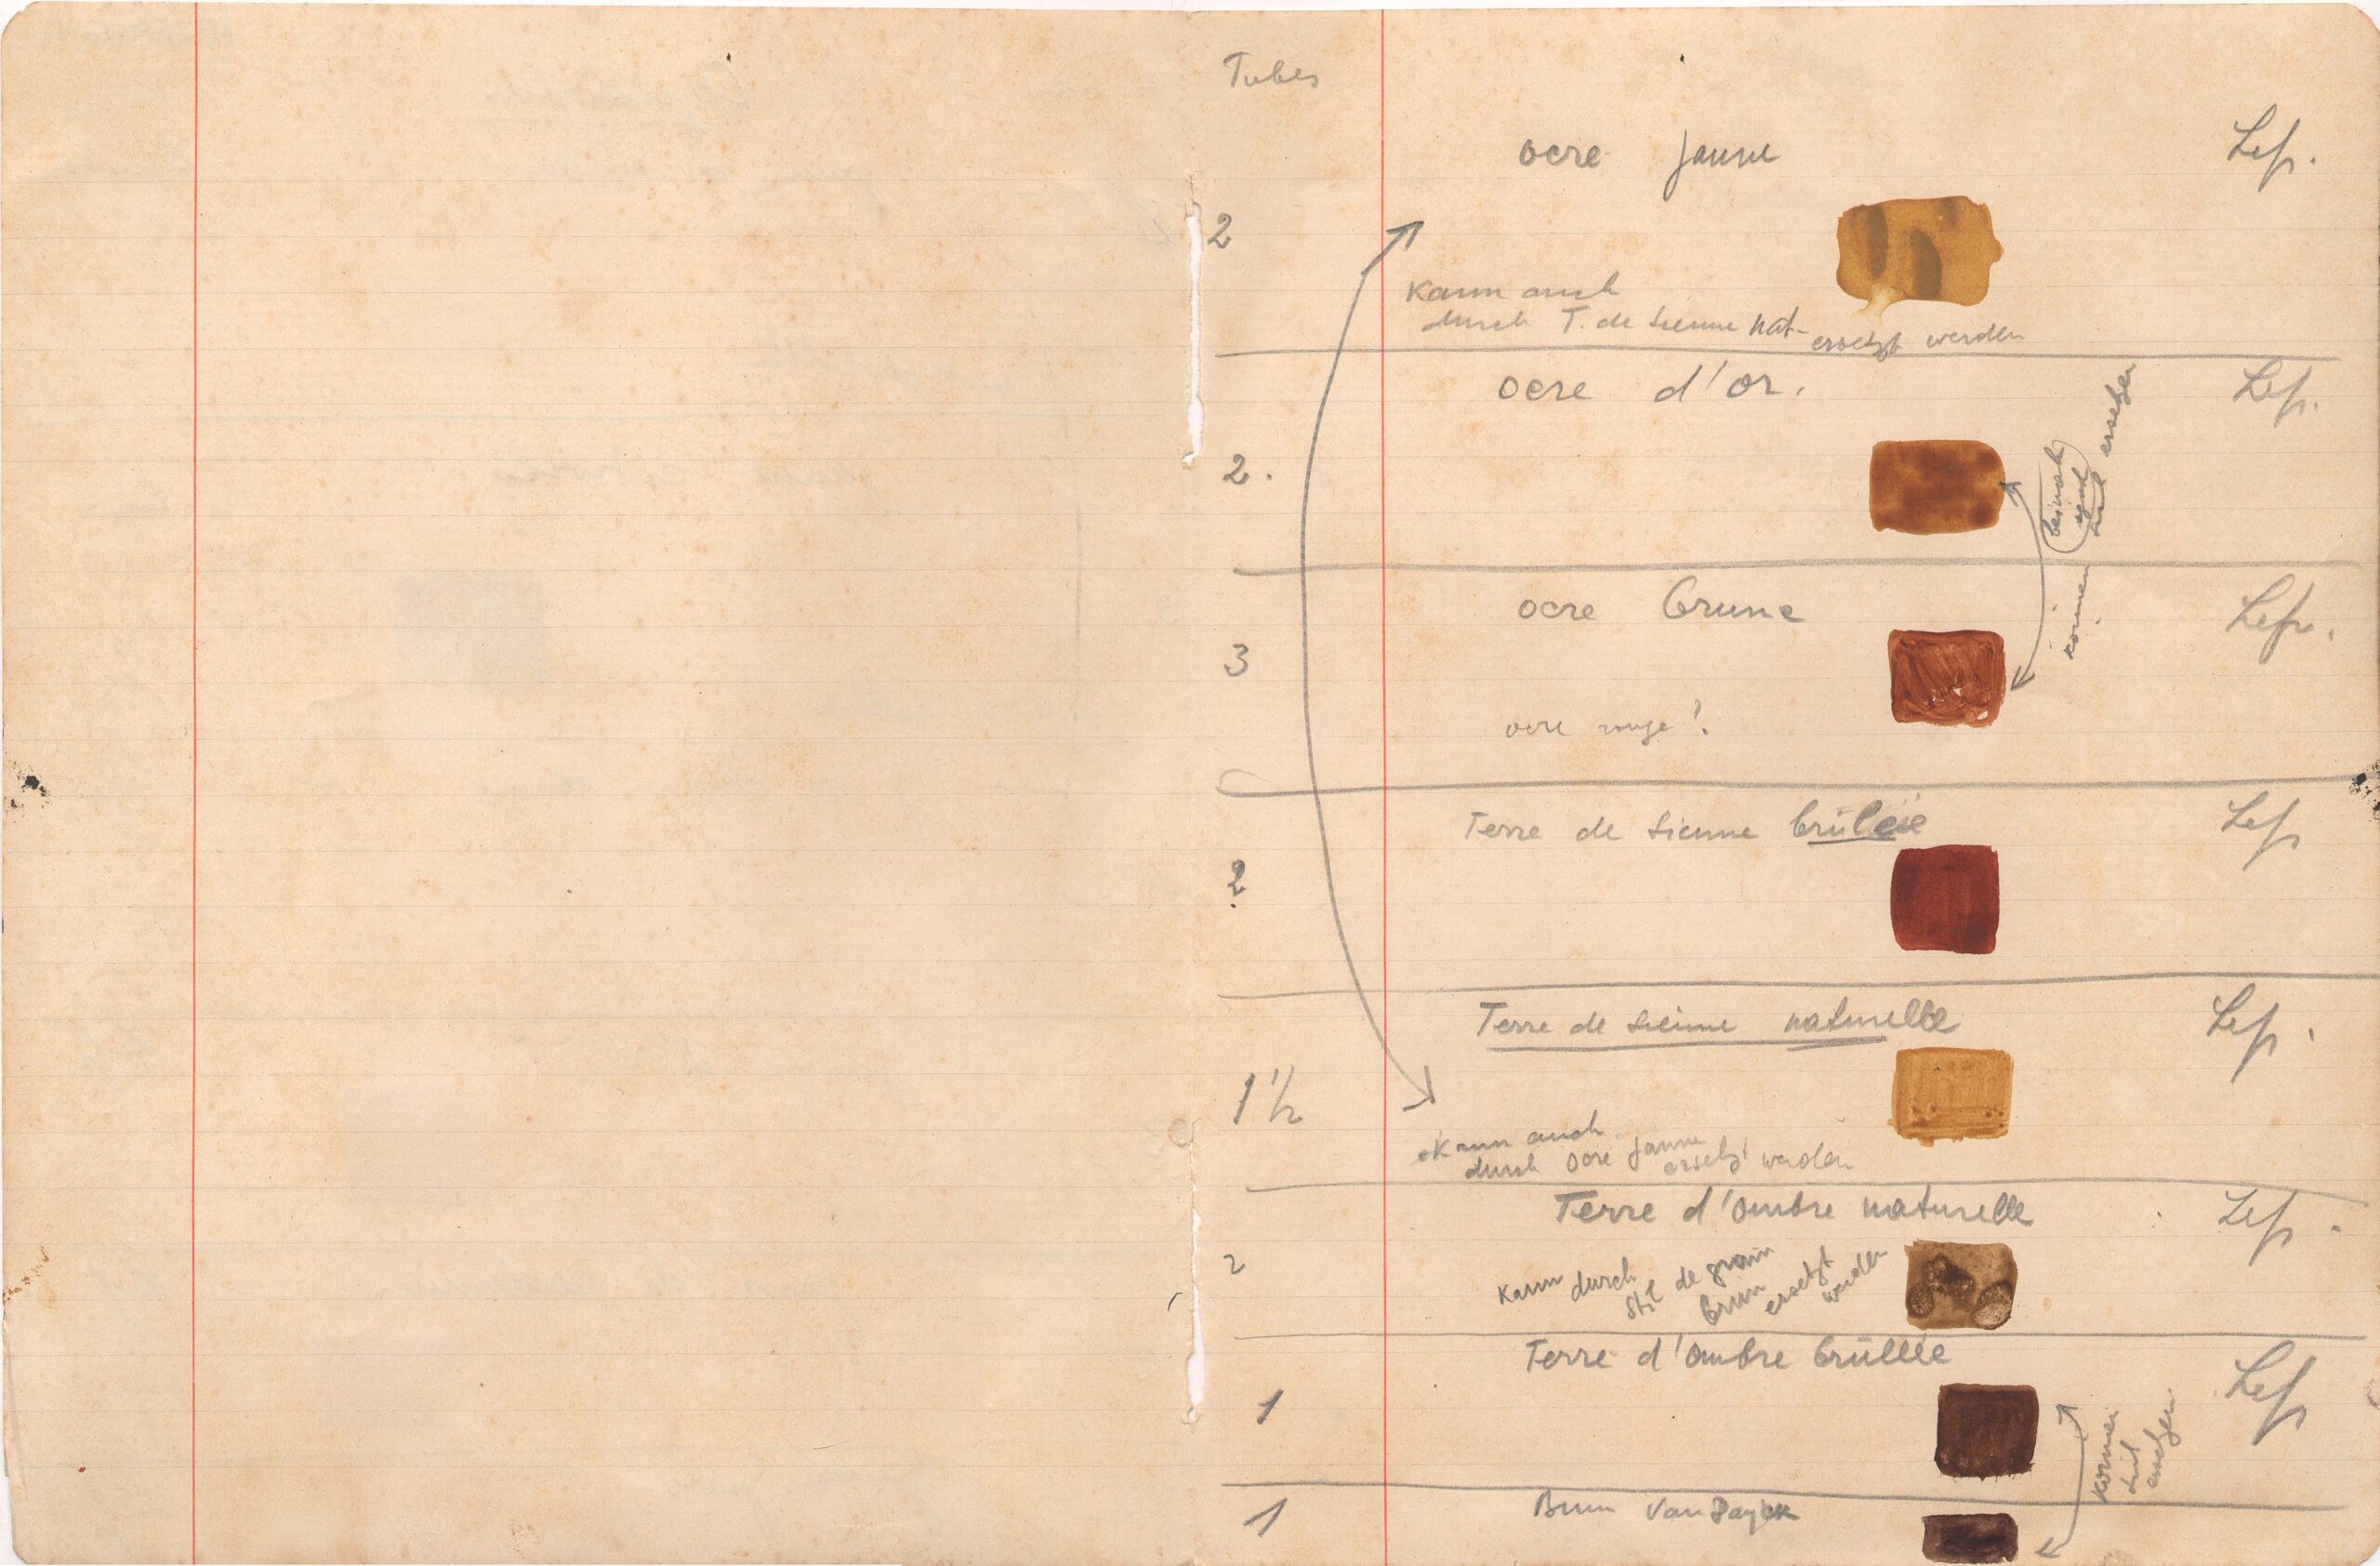 Tubes
ocre jaune Lef.
2
Kann auch
durch T. de Sienne nat- ersetzt werden
ocre d'or. Lef.
2.
beinah
können sich ersetzen
ocre brune Lefr.
3
ocre rouge!
Terre de Sienne brûlée Lef
2
Terre de Sienne naturelle Lef.
1 1/2
Kann auch
durch ocre jaune ersetzt werden
Terre d'ombre naturelle Lef.
2
Kann durch
Stil de grain
brun ersetzt
werden
Terre d'ombre brûllée Lef
1
ersetzen
1
Brun VanDayck